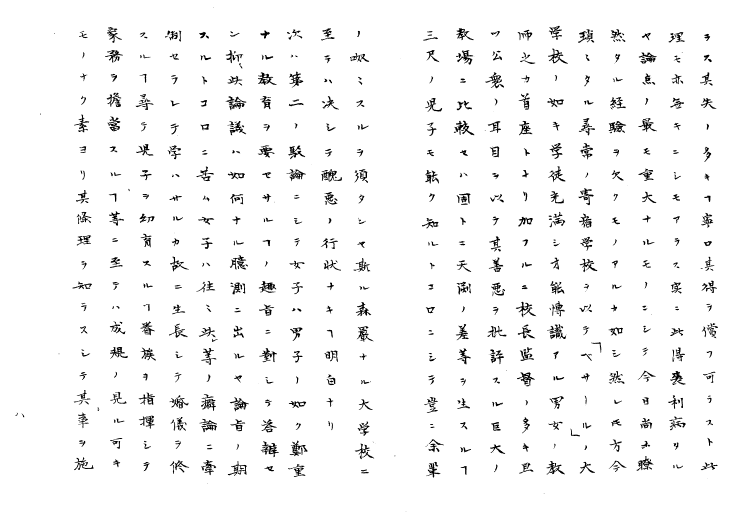 ラス其失ノ多キヿ寧ロ其得ヲ償フ可ラスト此
理モ亦無キニシモアラス実ニ此得喪利病タル
ヤ論点ノ最モ重大ナルモノニシテ今日尚ホ瞭
然タル経験ヲ欠クモノアルカ如シ然レ𪜈方今
瑣〻タル尋常ノ寄宿学校ヲ以テ「ベサール」ノ大
学校ノ如キ学徒充満シ方能博識アル男女ノ教
師之カ首座トナリ加フルニ校長監督ノ多キ且
ツ公衆ノ耳目ヲ以テ其善悪ヲ批評スル巨大ノ
教場ニ比較セハ固トニ天淵ノ差等ヲ生スルヿ
三尺ノ児子モ能ク知ルトコロニシテ豈ニ余輩
ノ呶〻スルヲ須タンヤ斯ル森厳ナル大学校ニ
至テハ决シテ醜悪ノ行状ナキヿ明白ナリ
次ハ第二ノ駁論ニシテ女子ハ男子ノ如ク鄭重
ナル教育ヲ要セサルヿノ趣旨ニ對シテ答辯セ
ン抑〻此論議ハ如何ナル臆測ニ出ルヤ論旨ノ期
スルトコロニ苦ム女子ハ往〻此等ノ癖論ニ牽
制セラレテ学ハサルカ故ニ生長シテ婚儀ヲ修
スルヿ尋テ児子ヲ幼育スルヿ眷族ヲ指揮シテ
家務ヲ擔當スルヿ等ニ至テハ成規ノ見ル可キ
モノナク素ヨリ其條理ヲ知ラスシテ其事ヲ施
八